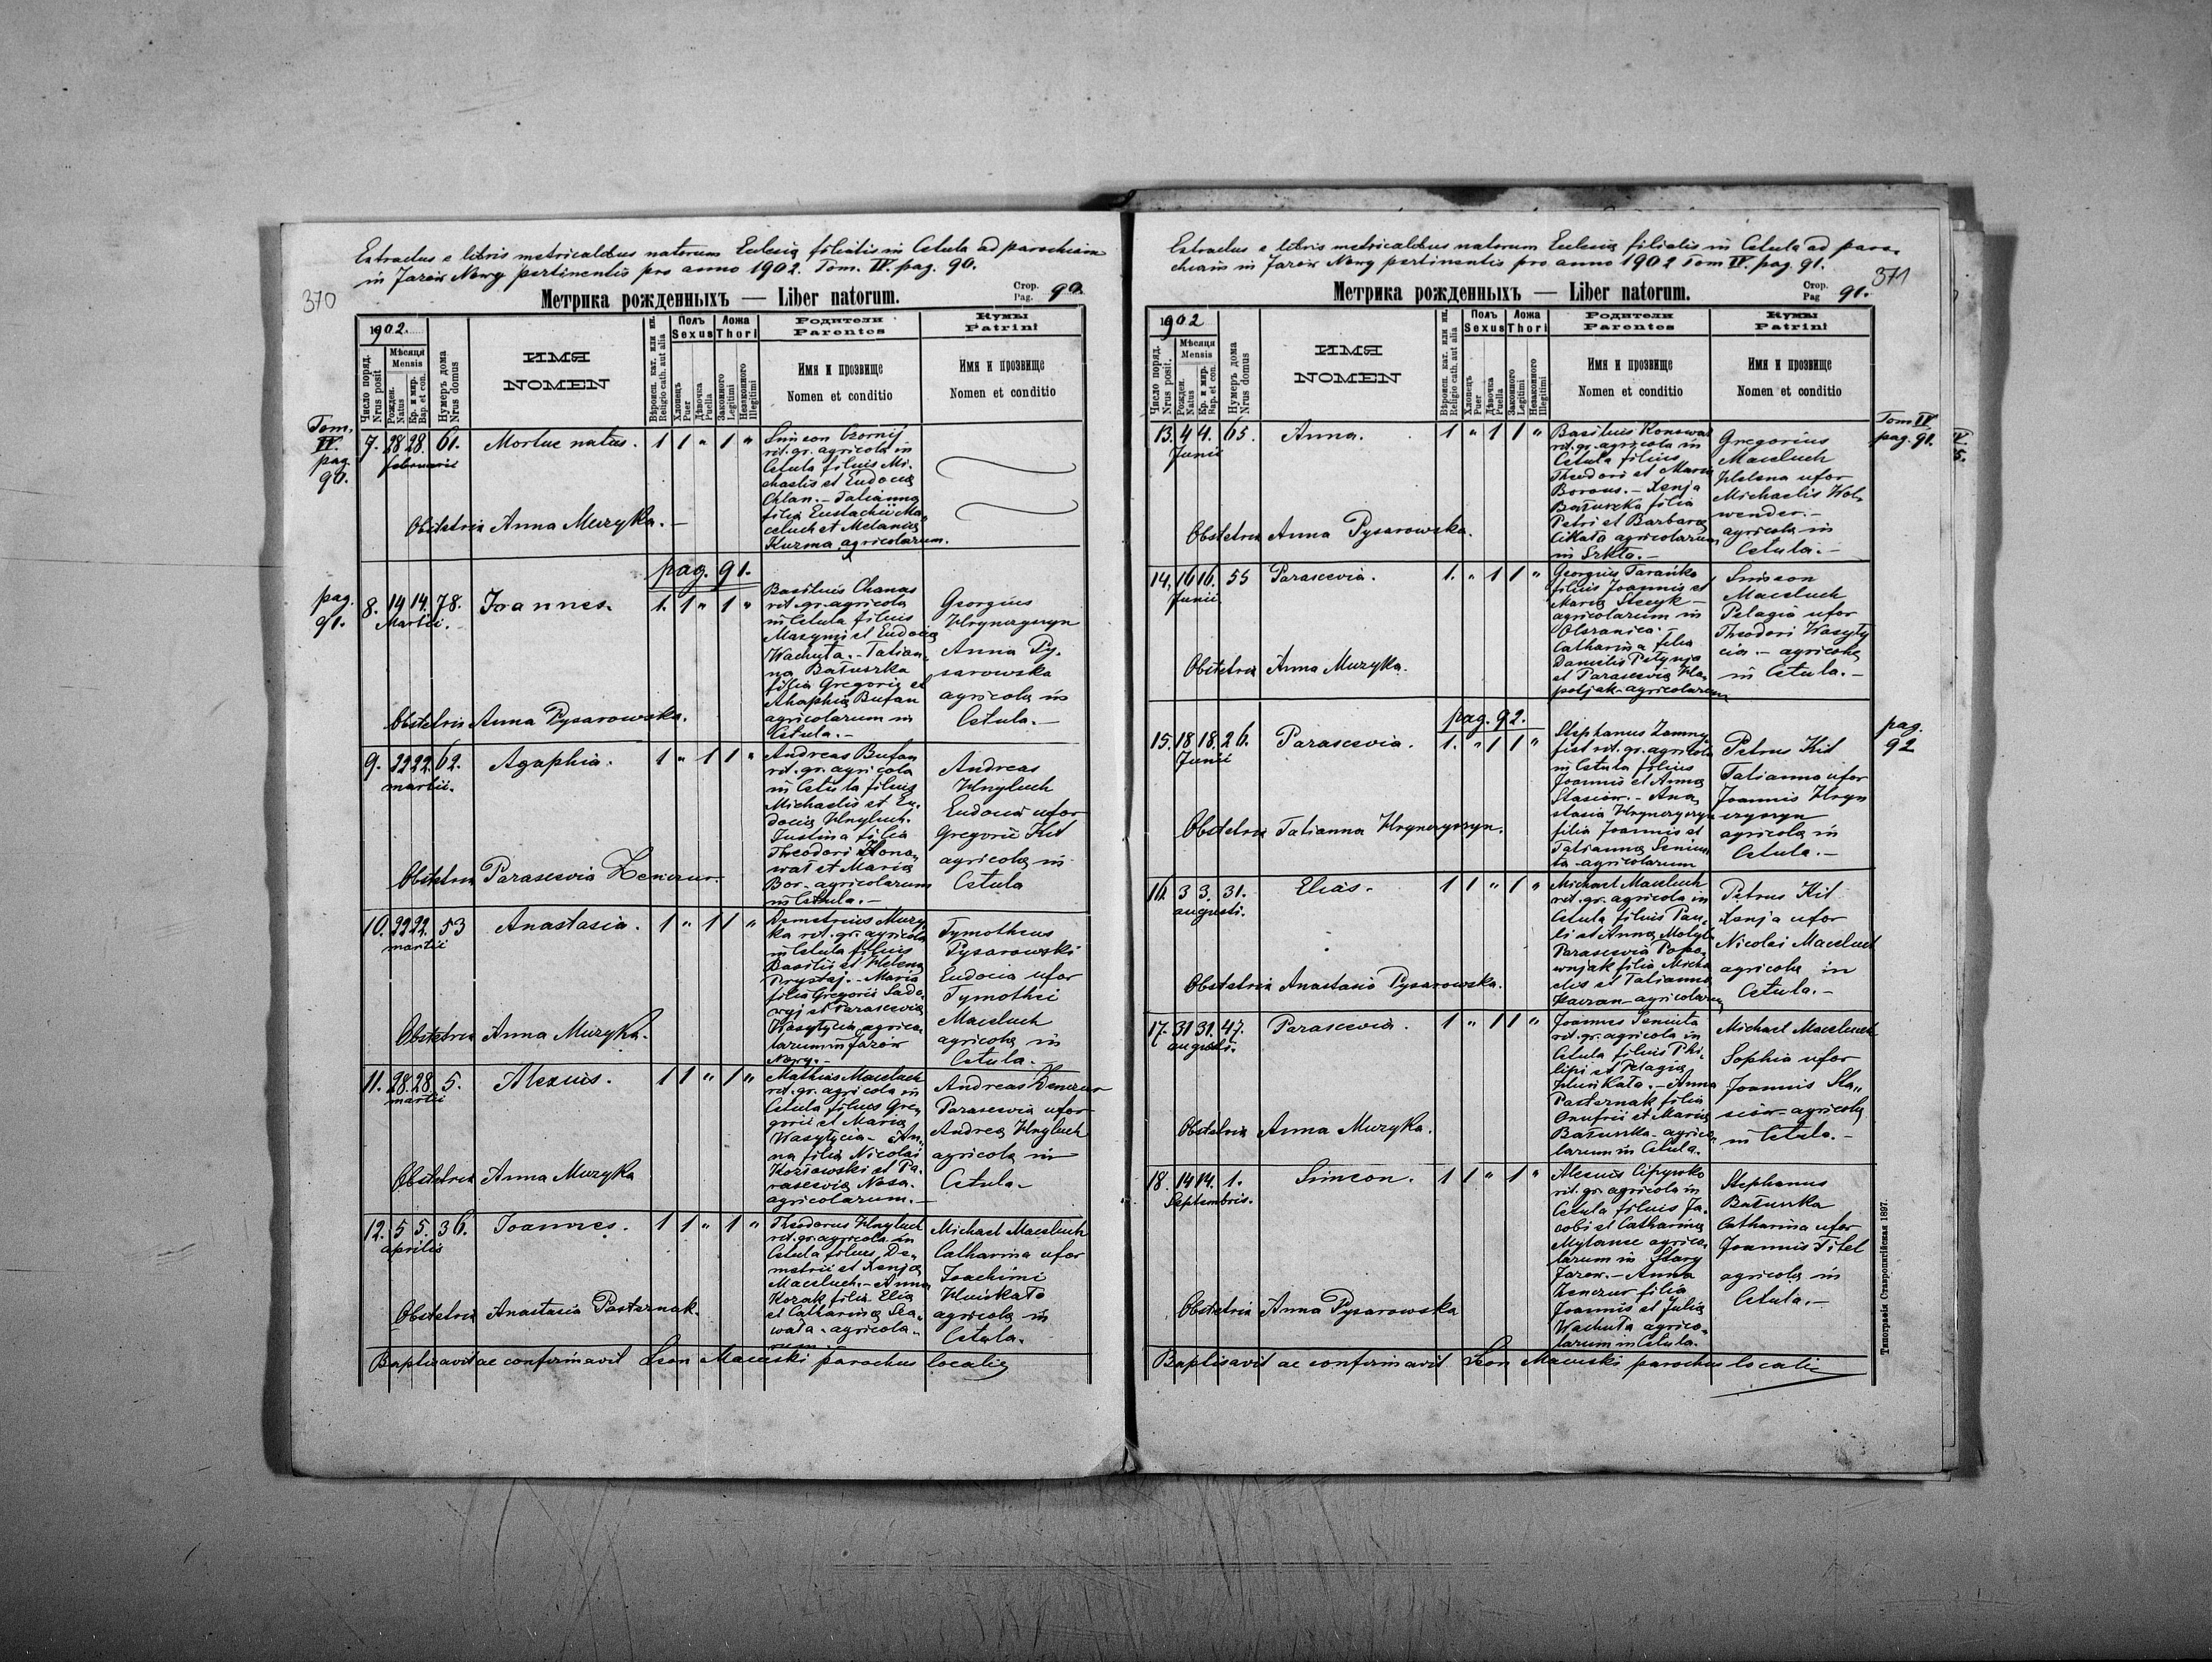 Extractus e libris metricalibus natorum Eclesiæ filialis in Cetula ad parochiam
in Jazów Nowy pertinentis pro anno 1902. Tom. IV. pag. 90.
370
Метрика рожденныхъ — Liber natorum.
Стор. Pag. 90.
1902.
Число поряд. Nrus posit
Мѣсяця Mensis
Рожден. Natus
Кр. и мир. Bap. et con.
Нумеръ дома Nrus domus
ИМЯ
NOMEN
Вѣроисп. кат. или ин. Religio cath. aut alia
Полъ Sexus
Хлопець Puer
Дѣвочка Puella
Ложа Thori
Законного Legitimi
Незаконного Illegitimi
Родители
Parentes
Имя и прозвище
Nomen et conditio
Кумы
Patrini
Имя и прозвище
Nomen et conditio
Tom.
IV.
pag.
90.
7. 28 28. 61. Mortue natus. 1 1 " 1 "
februarii
Simeon Czornij
rit. gr. agricola in
Cetula filius Mi-
chaelis et Eudociæ
Chlan. - Tatianna
filia Eustachii Ma-
celuch et Melaniæ
Kuzma agricolarum.
Obstetrix Anna Muzyka. -
pag. 91.
pag.
91.
8. 14 14. 78. Joannes. 1. 1 " 1 "
Martii.
Basilius Chanas
rit. gr. agricola
in Cetula filius
Maxymi et Eudociæ
Wachuta. - Tatian-
na Batuszka
filia Gregorii et
Ahaphiæ Bufan
agricolarum in
Cetula. -
Georgius
Hrynczyszyn
Anna Py-
sarowska
agricolæ in
Cetula. -
Obstetrix Anna Pysarowska.
9. 22 22. 62. Agaphia. 1 " 1 1 "
martii.
Andreas Bufan
rit. gr. agricola
in Cetula filius
Michaelis et Eu-
dociæ Hnyluch.
Justina filia
Theodori Kono-
wat et Mariæ
Bor- agricolarum
in Cetula. -
Andreas
Hnyluch
Eudocia uxor
Gregorii Kit
agricolæ in
Cetula
Obstetrix Parascevia Zenczur.
10. 22 22. 53 Anastasia. 1 " 1 1 "
martii
Demetrius Muzy
ka rit. gr. agricola
in Cetula filius
Basilii et Helenæ
Prystaj. - Maria
filia Gregorii Sado-
wyj et Parasceviæ
Wasytycia agrico-
larum in Jazów
Nowy. -
Tymotheus
Pysarowski
Eudocia uxor
Tymothei
Maceluch
agricolæ in
Cetula. -
Obstetrix Anna Muzyka.
11. 28. 28 5. Alexius. 1 1 " 1 "
martii
Mathias Maceluch
rit. gr. agricola in
Cetula filius Gre-
gorii et Mariæ
Wasytycia - An-
na filia Nicolai
Kozłowski et Pa-
rasceviæ Nasa.
agricolarum. -
Andreas Zenczur
Parascevia uxor
Andreæ Hnyluch
agricolæ in
Cetula -
Obstetrix Anna Muzyka
12. 5 5. 36. Joannes. 1 1 " 1 "
aprilis
Theodorus Hnyluch
rit. gr. agricola in
Cetula filius De-
metrii et Xeniæ
Maceluch. - Anna
Kozak filia Eliæ
et Catharinæ Ska-
wata - agricola-
rum. -
Michael Maceluch
Catharina uxor
Joachimi
Hluińkata
agricolæ in
Cetula.
Obstetrix Anastasia Pasternak.
Baptisavit ac confirmavit Leon Macuski parochus localis
Extractus e libris metricalibus natorum Eclesiæ filialis in Cetula ad paro-
chiam in Jazów Nowy pertinentis pro anno 1902 Tom IV. pag. 91.
371
Метрика рожденныхъ — Liber natorum.
Стор. Pag 91.
1902
Число поряд. Nrus posit.
Мѣсяця Mensis
Рожден. Natus
Кр. и мир. Bap. et con.
Нумеръ дома Nrus domus
ИМЯ
NOMEN
Вѣроисп. кат. или ин. Religio cath. aut alia
Полъ Sexus
Хлопець Puer
Дѣвочка Puella
Ложа Thori
Законного Legitimi
Незаконного Illegitimi
Родители
Parentes
Имя и прозвище
Nomen et conditio
Кумы
Patrini
Имя и прозвище
Nomen et conditio
Tom IV
pag. 91.
13. 4 4. 65. Anna. 1 " 1 1 "
Junii
Basilius Konowat
rit. gr. agricola in
Cetula filius
Theodori et Mariæ
Borous. - Xenja
Batuszka filia
Petri et Barbaræ
Cikała agricolarum
in Szkło. -
Gregorius
Maceluch
Helena uxor
Michaelis Wol-
wender. -
agricolæ in
Cetula. -
Obstetrix Anna Pysarowska.
14. 16 16. 55 Parascevia. 1. " 1 1 "
Junii.
Georgius Tarańko
filius Joannis et
Mariæ Steryk -
agricolarum in
Olszanica. -
Catharina filia
Danielis Petynja
et Parasceviæ Hla-
poljak - agricolarum
Simeon
Maceluch
Pelagia uxor
Theodori Wasyty
cia. - agricolæ
in Cetula. -
Obstetrix Anna Muzyka.
pag. 92.
pag.
92
15. 18 18. 26. Parascevia. 1. " 1 1 "
Junii
Stephanus Zamny-
fist rit. gr. agricola
in Cetula filius
Joannis et Annæ
Stasiów. - Ana-
stasia Hrynczyszyn
filia Joannis et
Tatiannæ Seniu-
ta - agricolarum
Petrus Kit
Tatianna uxor
Joannis Hryn
czyszyn
agricolæ in
Cetula. -
Obstetrix Tatianna Hrynczyszyn.
16. 3 3. 31. Elias. 1 1 " 1 "
augusti.
Michael Maceluch
rit. gr. agricola in
Cetula filius Pau-
li et Annæ
Parascevia Popo-
wnjak filia Micha
elis et Tatiannæ
Kawzan - agricolarum
Petrus Kit
Xenja uxor
Nicolai Maceluch
agricolæ in
Cetula. -
Obstetrix Anastasia Pysarowska.
17. 31 31. 47. Parascevia. 1 " 1 1 "
augusti.
Joannes Seniuta
rit. gr. agricola in
Cetula filius Phi-
lipi et Pelagiæ
Hluińkata. - Anna
Pasternak filia
Onufrii et Mariæ
Batuszka - agrico-
larum in Cetula.
Michael Maceluch
Sophia uxor
Joannis Sta-
siów - agricolæ
in Cetula. -
Obstetrix Anna Muzyka.
18. 14 14. 1. Simeon. 1 1 " 1 "
Septembris.
Alexius Cipywko
rit. gr. agricola in
Cetula filius Ja-
cobi et Catharinæ
Mylanie agrico-
larum in Stary
Jazow. - Anna
Zenczur filia
Joannis et Juliæ
Wachuta agrico-
larum in Cetula.
Stephanus
Batuszka
Catharina uxor
Joannis Titel
agricolæ in
Cetula. -
Obstetrix Anna Pysarowska
Baptisavit ac confirmavit Leon Macuski parochus localis
Типографія Ставропигійская 1897.